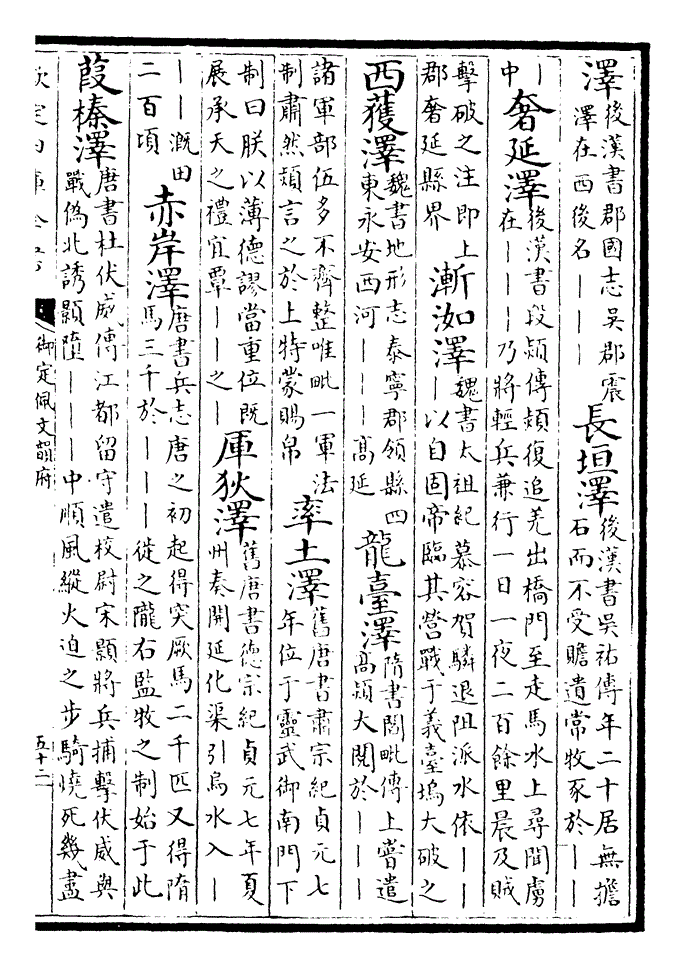 澤
後漢書郡國志吳郡震
澤在西後名｜｜｜
長垣澤
後漢書吳祐傳年二十居無擔
石而不受贍遺常牧豕於｜｜
｜
中
奢延澤
後漢書段熲傳熲復追羌出橋門至走馬水上尋聞虜
在｜｜｜乃將輕兵兼行一日一夜二百餘里晨及賊
擊破之注即上
郡奢延縣界
漸洳澤
魏書太祖紀慕容賀驎退阻派水依｜｜
｜以自固帝臨其營戰于義臺塢大破之
西䕶澤
魏書地形志泰寧郡領縣四
東永安西河｜｜｜高延
龍臺澤
隋書閻毗傳上嘗遣
高熲大閱於｜｜｜
諸軍部伍多不齊整唯毗一軍法
制肅然熲言之於上特蒙賜帛
率土澤
舊唐書肅宗紀貞元七
年位于靈武御南門下
制曰朕以薄德謬當重位既
展承天之禮宜覃｜｜之｜
厙狄澤
舊唐書德宗紀貞元七年夏
州奏開延化渠引烏水入｜
｜｜溉田
二百頃
赤岸澤
唐書兵志唐之初起得突厥馬二千匹又得隋
馬三千於｜｜｜徙之隴右監牧之制始于此
葭榛澤
唐書杜伏威傳江都留守遣校尉宋顥將兵捕擊伏威與
戰偽北誘顥墮｜｜｜中順風縱火迫之步騎燒死幾盡
欽定四庫全書
御定佩文韻府
五十二